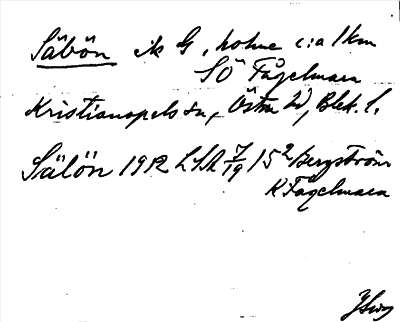 Säbön ik G, holme c:a 1 km
SO Fågelmara
Kristianopels sn, Östra hd, Blek. l.
Sälön 1912 LSA 7/19 15² Bergström
K Fågelmara